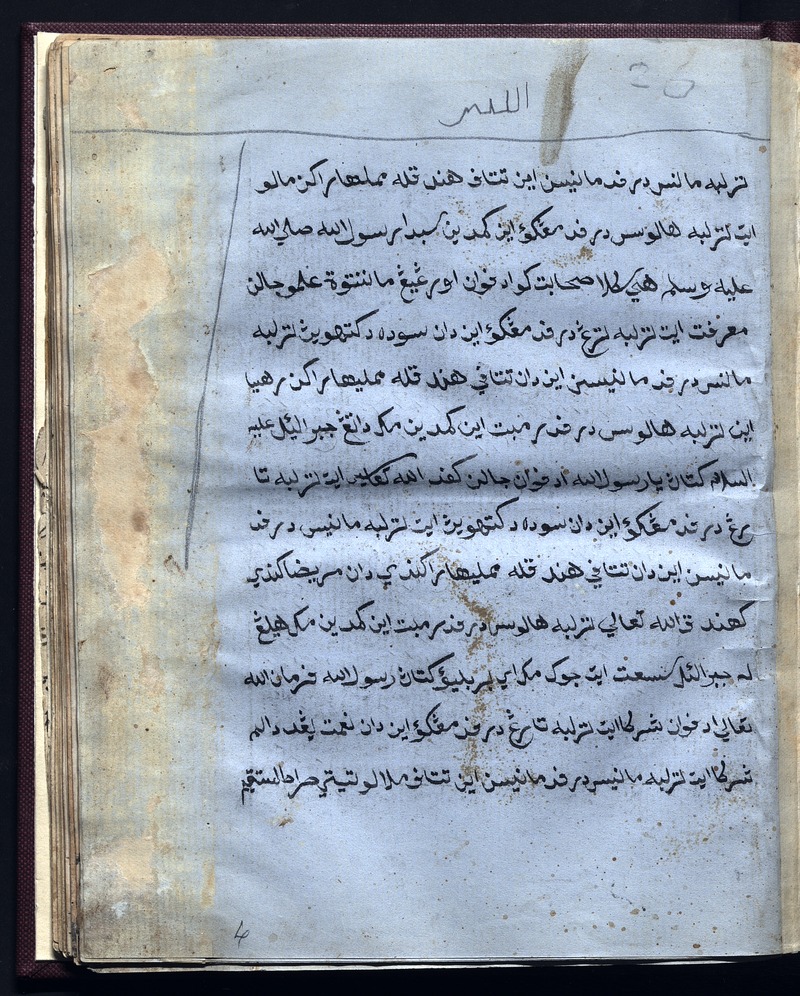 لزلبه مانس در قد مانيسن اين تتاڤي هند قله ممليهاراكن مالو
ايت لزلبه هالوسس در قد مڠكوق اين كمدين سبدا رسول الله صلى الله
عليه وسلم هي كلا صحابت كو ادڤون اورڠيڠ مانتوة علمو جالن
معرفت ايت لزلبه لترڠ در قد مڠكوق اين دان سوده دكتهوين لزلبه
مانس در قد مانيسن اين دان تتاڤي هند قله ممليهاراكن رهسيا
اين لزلبه هالوسس در قد رمبت اين كمدين مك داتڠ جبرائيل عليه
السلام كتان يا رسول الله ادڤون جالن كڤد الله تعالى ايت لزلبه تا
رڠ در قد مڠكوق اين دان سوده دكتهوين ايت لزلبه مانيس در قد
مانيسن اين دان تتاڤي هند قله ممليهاراكندي دان مريضاكندي
كهندق الله تعالي لزلبه هالوسس در قد رمبت اين كمدين مك هيلڠ
له جبرائيل سسعت ايت جوك مك اي كمبلي كتان رسول الله فرمان الله
تعالي ادڤون شركا ايت لزلبه تارڠ در قد مڠكوق اين دان نعمت يڠد دالم
شركا ايت لزلبه مانيس در قد مانيسن اين تتاڤي ملالو تيتي صراط المستقيم
4